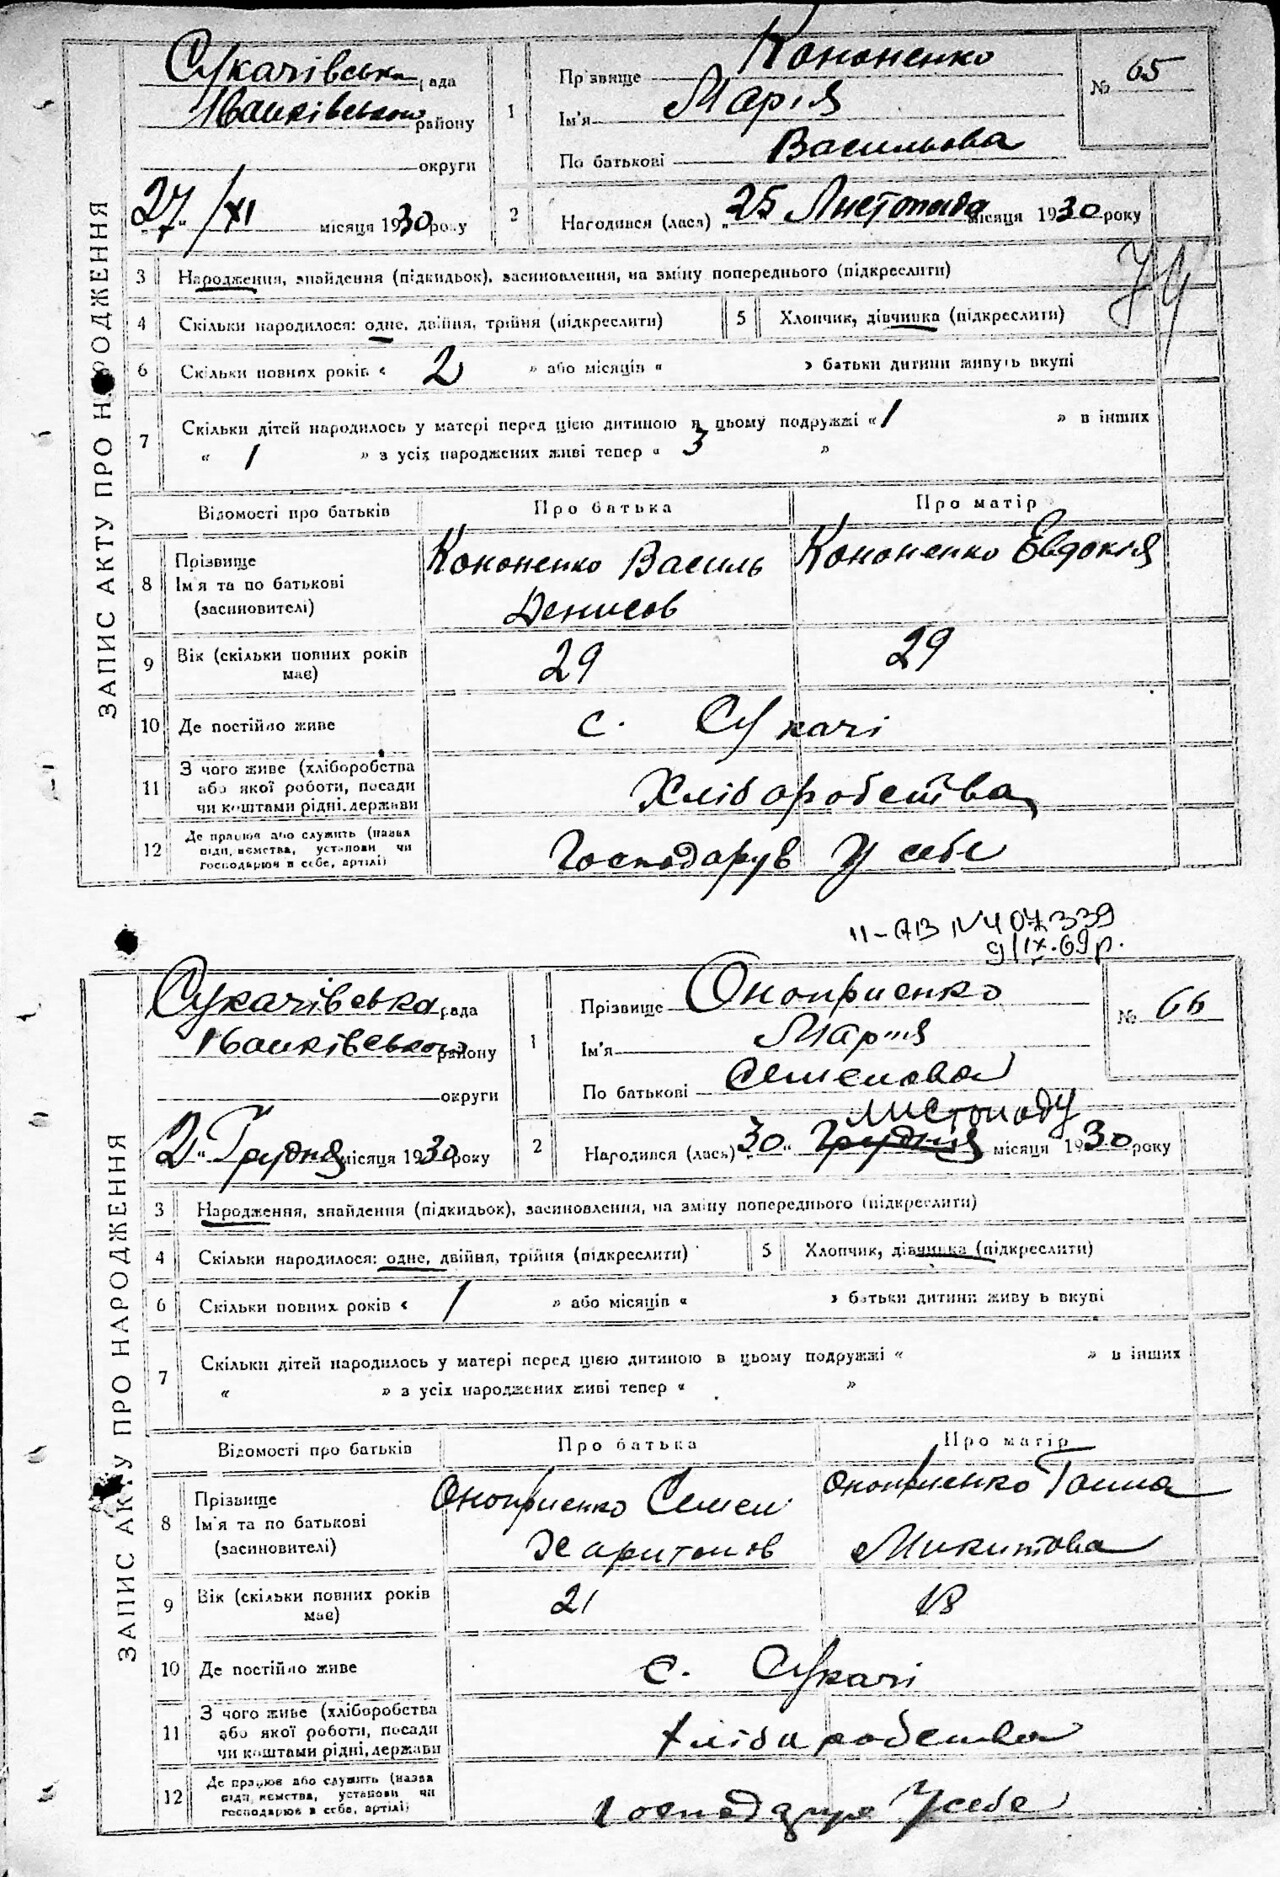 ЗАПИС АКТУ ПРО НАРОДЖЕННЯ
Сукачівська рада
Іванківського району
округи
27/XI місяця 1930 року
1 Прізвище Кононенко
Ім'я Марія
По батькові Васильова
№ 65
2 Народився (лася) „25 Листопада місяця 1930 року
3 Народження, знайдення (підкидьок), засиновлення, на зміну попереднього (підкреслити)
74
4 Скільки народилося: одне, двійня, трійня (підкреслити) 5 Хлопчик, дівчинка (підкреслити)
6 Скільки повних років « 2 » або місяців « » батьки дитини живуть вкупі
7 Скільки дітей народилось у матері перед цією дитиною в цьому подружжі « 1 » в інших
« 1 » з усіх народжених живі тепер « 3 »
Відомості про батьків Про батька Про матір
8 Прізвище Кононенко Василь Кононенко Евдокія
Ім'я та по батькові Денисов
(засиновителі)
9 Вік (скільки повних років 29 29
має)
10 Де постійно живе с. Сукачі
11 З чого живе (хліборобства
або якої роботи, посади Хліборобства
чи коштами рідні, держави
12 Де працює або служить (назва
підприємства, установи чи Господарув У себе
господарює в себе, артілі)
II-АВ № 407339
9/IX.69р.
ЗАПИС АКТУ ПРО НАРОДЖЕННЯ
Сукачівська рада
Іванківського району
округи
2 „ Грудня місяця 1930 року
1 Прізвище Оноприенко
Ім'я Марія
По батькові Семенова
№ 66
листопаду
2 Народився (лась) „30" Грудня місяця 1930 року
3 Народження, знайдення (підкидьок), засиновлення, на зміну попереднього (підкреслити)
4 Скільки народилося: одне, двійня, трійня (підкреслити) 5 Хлопчик, дівчинка (підкреслити)
6 Скільки повних років « 1 » або місяців « » батьки дитини живуть вкупі
7 Скільки дітей народилось у матері перед цією дитиною в цьому подружжі « » в інших
« » з усіх народжених живі тепер « »
Відомості про батьків Про батька Про матір
8 Прізвище Оноприенко Семен Оноприенко Ганна
Ім'я та по батькові Харитонов Микитова
(засиновителі)
9 Вік (скільки повних років 21 18
має)
10 Де постійно живе с. Сукачі
11 З чого живе (хліборобства
або якої роботи, посади Хліборобства
чи коштами рідні, держави
12 Де працює або служить (назва
підприємства, установи чи Господарує У себе
господарює в себе, артілі)